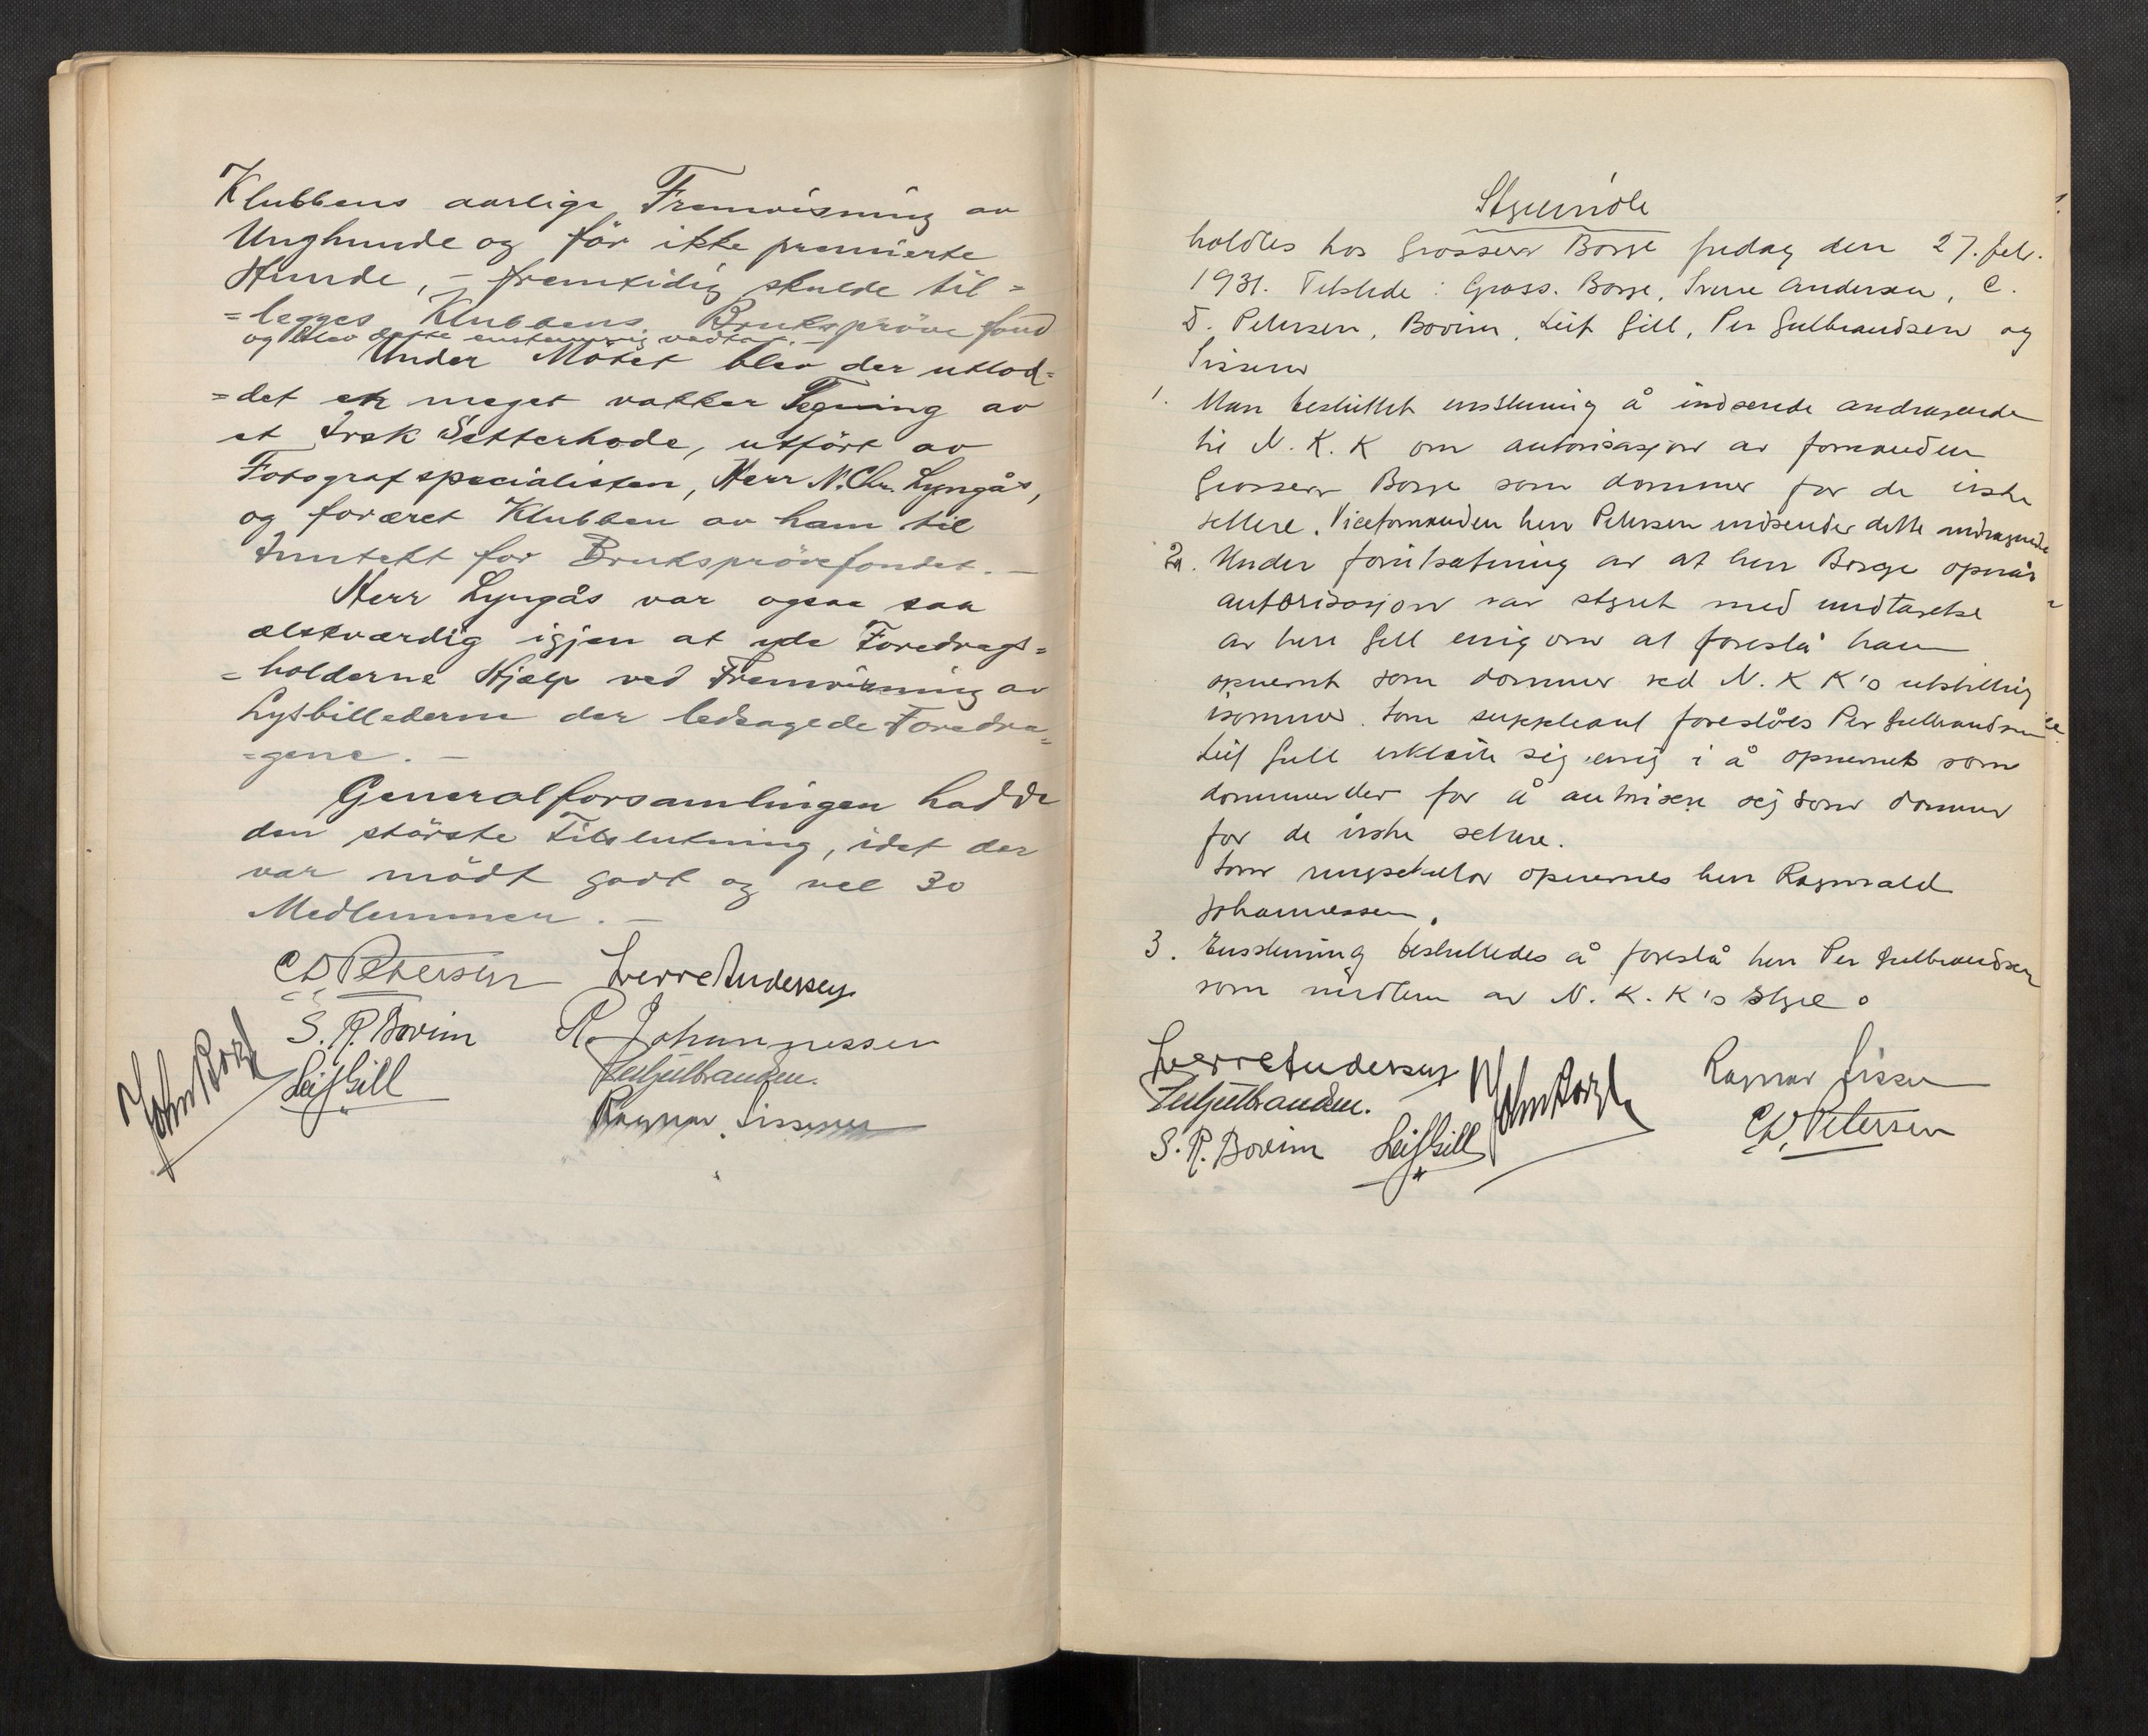 Klubbens aarlige Fremvisning av
Unghunde og før ikke premierte
Hunde, – fremtidig skulde til=
=legges Klubbens Bruksprøve fond
og blev dette enstemmig vedtat. –
Under Møtet blev der utlod=
=det en meget vakker Tegning av
et Irsk Setterhode, utført av
Fotografspecialisten, Herr N. Chr. Lyngås,
og foræret Klubben av ham til
Inntekt for Bruksprøvefondet. –
Herr Lyngås var ogsaa saa
elskværdig igjen at yde Foredrags=
=holderne Hjælp ved Fremvisning av
Lysbillederne der ledsagede Foredra=
=gene. –
Generalforsamlingen hadde
den største Tilslutning, idet der
var mødt godt og vel 30
Medlemmer. –
C D, Petersen Sverre Andersen
S. R. Bovim R. Johannessen
John Borge Leif Gill Per Gulbrandsen.
Ragnar Sissener
Styremöte
holdtes hos Grosserer Borge fredag den 27. feb.
1931. Tilstede : Gross. Borge, Sverre Andersen, C.
D. Petersen, Bovim, Leif Gill, Per Gulbrandsen og
Sissener
1. Man besluttet enstemmig å indsende andragende
til N. K. K om autorisasjon av formanden
Grosserer Borge som dommer for de irske
settere. Viceformanden herr Petersen indsender dette andragende
2. Under forutsetning av at herr Borge opnår
autorisasjon var styret med undtagelse
av herr Gill enig om at foreslå ham
opnevnt som dommer ved N. K K's utstilling
isommer. Som suppleant foreslåes Per Gulbrandsen
Leif Gill erklærte sig enig i å opnevnes som
dommerelev for å autorisere sig som dommer
for de irske settere.
Som ringsekretær opnevnes herr Ragnvald
Johannessen.
3. Enstemmig besluttedes å foreslå herr Per Gulbrandsen
som medlem av N. K. K's styre.
Sverre Andersen John Borge Ragnar Sissener
Per Gulbrandsen. C D, Petersen
S. R. Bovim Leif Gill